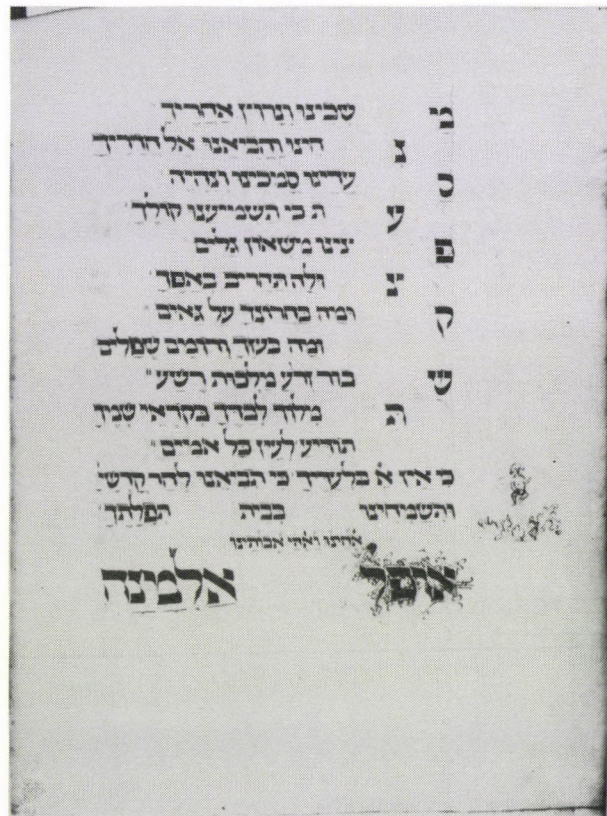 מ שכינו ונרוץ אחריך
נ חינו והביאנו אל חדריך
ס עדינו סמכינו ונחיה
ע ת כי תשמיענו קולך
פ צינו משאון גלים
צ ולה תהרים באפך
ק ומה בחרונך על גאים
ומה בעזך ורומם שפלים
ש בור זרע מלכות רשע
ת מלוך לבדך בקראי שמך
תודיע לעין כל אמיים
כי אין א בלעדיך כי תביאנו להר קדשך
והשמחינו בבית תפלתך
אבותינו
אלמנה